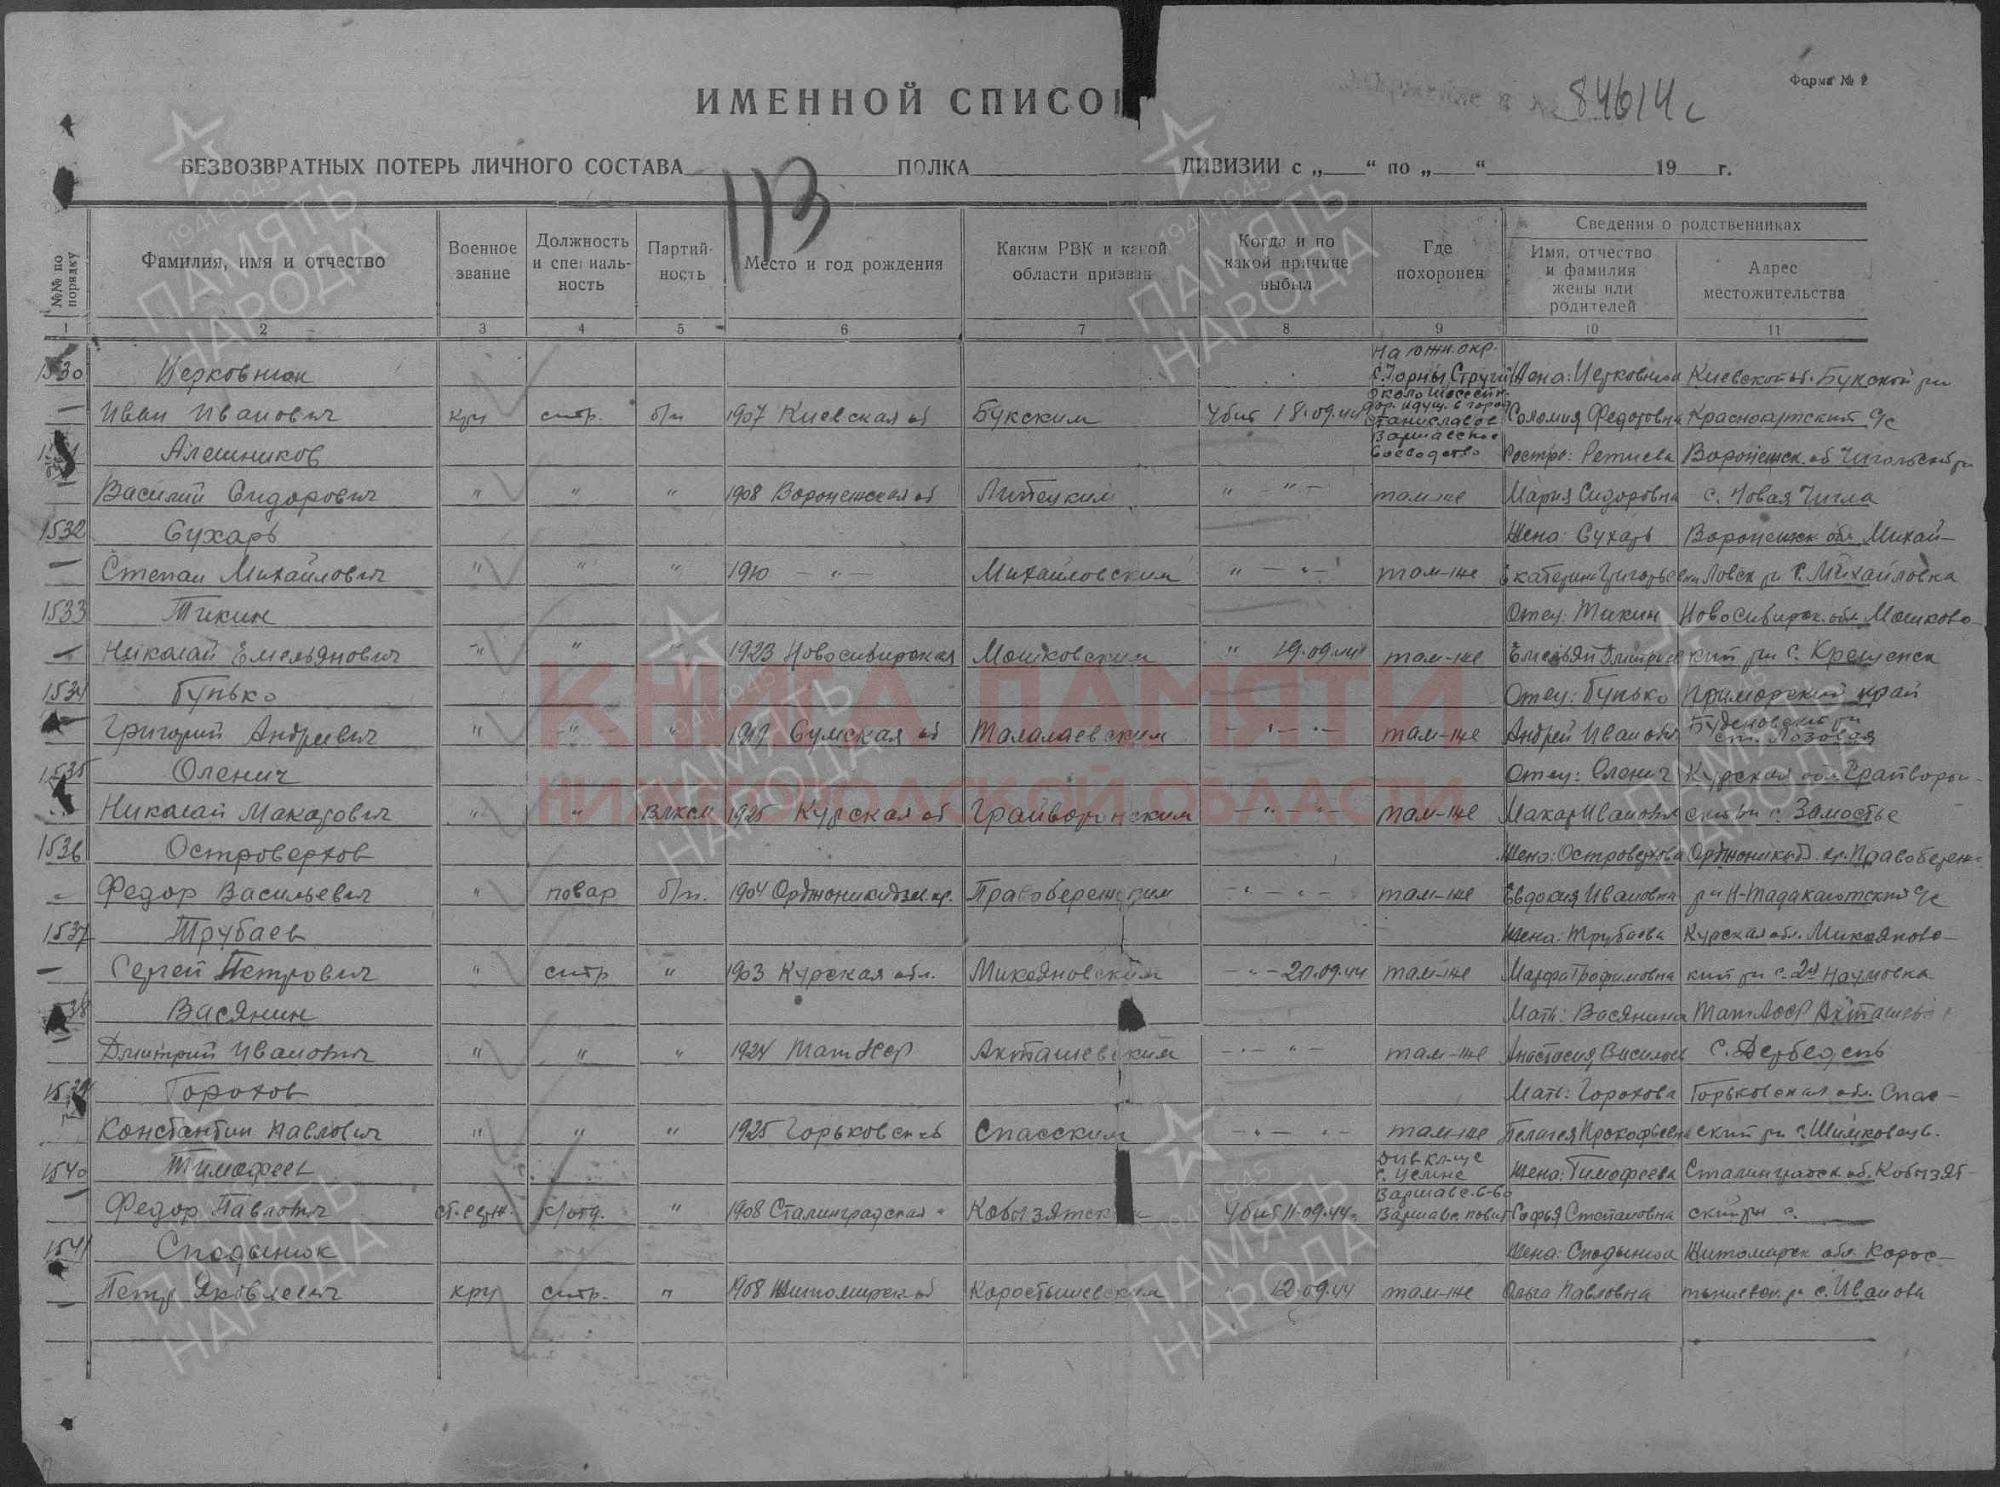 Форма № 2
84614с
ИМЕННОЙ СПИСОК
БЕЗВОЗВРАТНЫХ ПОТЕРЬ ЛИЧНОГО СОСТАВА ПОЛКА ДИВИЗИИ с „ “ по „ “ 19 г.
113
№№ по порядку
Фамилия, имя и отчество
Военное звание
Должность и специальность
Партийность
Место и год рождения
Каким РВК и какой области призван
Когда и по какой причине выбыл
Где похоронен
Сведения о родственниках
Имя, отчество и фамилия жены или родителей
Адрес местожительства
1 2 3 4 5 6 7 8 9 10 11
На южн. окр.
1530 Церковнюк с. Горны Струги Жена: Церковнюк Киевской об. Букской рн
около шоссейн.
Иван Иванович кр-ц стр. б/п 1907 Киевская об Букским Убит 18.09.44 дор. идущ. в город Станиславов Соломия Федотовна Краснокутский с/с
Варшавское
Алешников воеводство Сестра: Ретиева Воронежск. об Чигольский рн
Василий Сидорович " " " 1908 Воронежская об Липецким " " там-же Мария Сидоровна с. Новая Чигла
1532 Сухарь Жена: Сухарь Воронежск обл. Михай-
Степан Михайлович " " " 1910 - " - Михайловским " - " - там-же Екатерина Григорьевна ловск рн с. Михайловка
1533 Тикин Отец: Тикин Новосибирск. обл. Мошково-
Николай Емельянович " " " 1923 Новосибирская Мошковским " 19.09.44 там-же Емельян Дмитриев кий рн с. Крещенск
1534 Гунько Отец: Гунько Приморский край
Григорий Андреевич " " " 1919 Сумская об Талалаевским - " - " - там-же Андрей Иванович Буденовский рн ст. Лозовая
1535 Оленич Отец: Оленич Курская обл. Грайворон-
Николай Макарович " " ВЛКСМ 1925 Курская об Грайворонским - " - " там-же Макар Иванович ский рн с. Замостье
1536 Островерхов Жена: Островерхова Орджоникидз. кр. Правобереж-
Федор Васильевич " повар б/п. 1904 Орджоникидзев. кр. Правобережным - " - " - там-же Евдокия Ивановна рн
1537 Трубаев Жена: Трубаева Курская обл. Микояново-
Сергей Петрович " стр " 1903 Курская обл. Микояновским - " - 20.09.44 там-же Марфа Трофимовна кий рн с. 2я Наумовка
Васянин Мать: Васянина ТатАССР Акташевс
Дмитрий Иванович " " " 1924 Акташевским - " - " - там-же Анастасия Васильев с. Дербедень
Горохов Мать: Горохова Горьковская обл. Спас-
Константин Павлович " " " 1925 Горьковск об Спасским - " - " - там-же Пелагея Прокофьевна ский рн с. Шимковец.
1540 Тимофеев с. Целине Жена: Тимофеева Сталинградск. об. Кобызят-
Варшавс. в-во
Федор Павлович ст. серж. к/отд. " 1908 Сталинградская " Убит 11.09.44 Варшавс. повят Софья Степановна ский рн с.
1541 Сподынюк Жена: Сподынюк Житомирск обл. Корос-
Петр Яковлевич крц стр. " 1908 Житомирск об Коростышевским " 12.09.44 там-же Ольга Павловна тышевск. р с. Иванова
КНИГА ПАМЯТИ
НИЖЕГОРОДСКОЙ ОБЛАСТИ
1941-1945
ПАМЯТЬ
НАРОДА